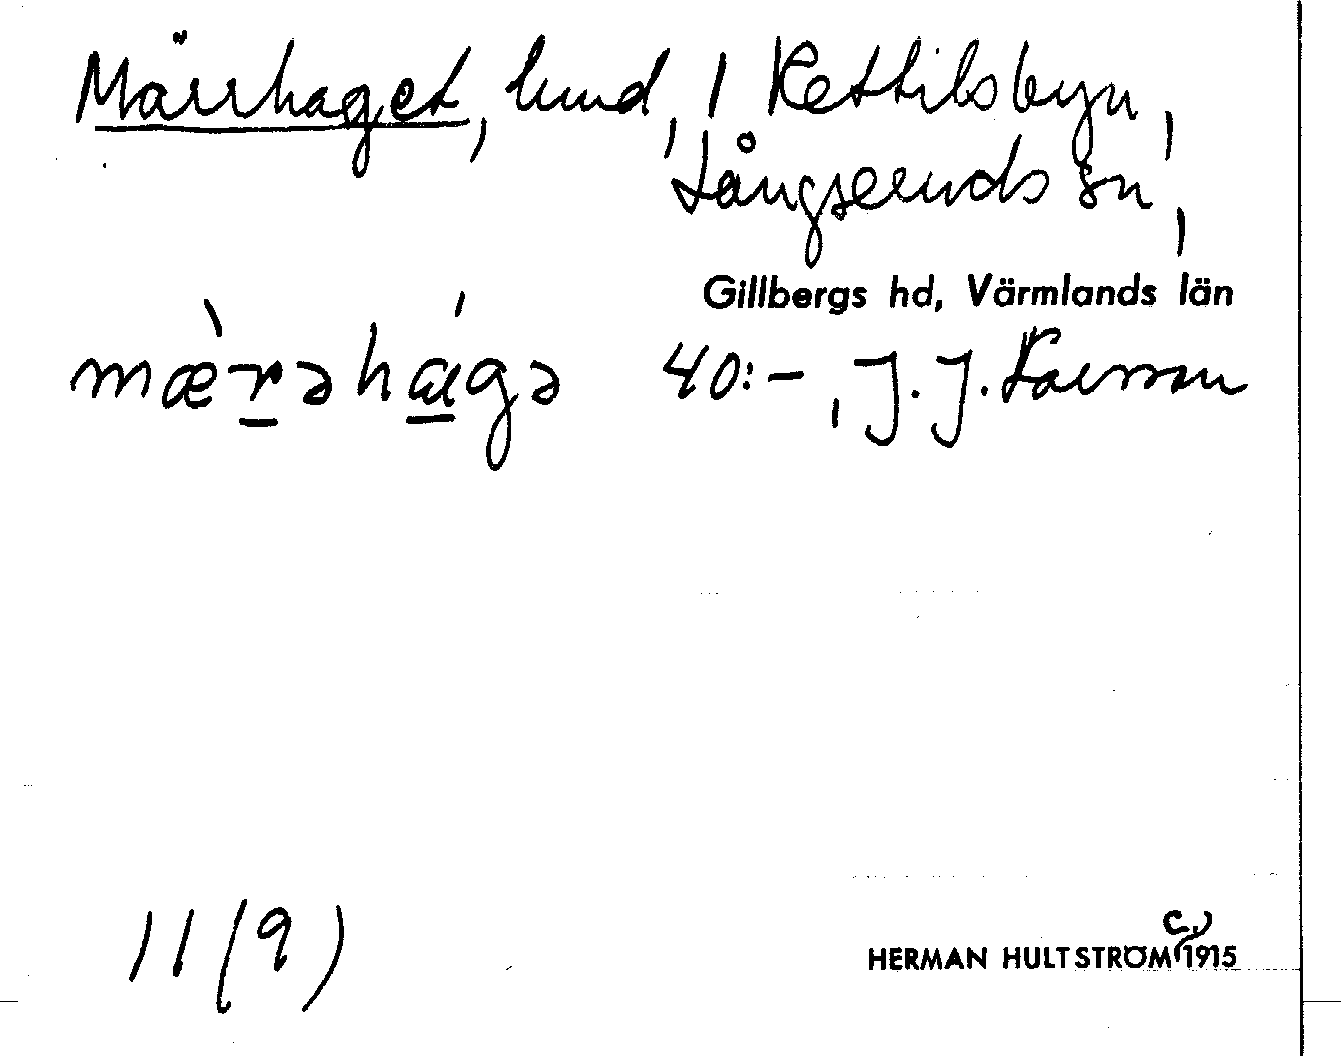 Märrhaget, lund, i Kettilsbyn,
Långseruds sn,
Gillbergs hd, Värmlands län
mæ̀rəhágə 40:-, J. J. Larsson
11(9) HERMAN HULTSTRÖM c. 1915